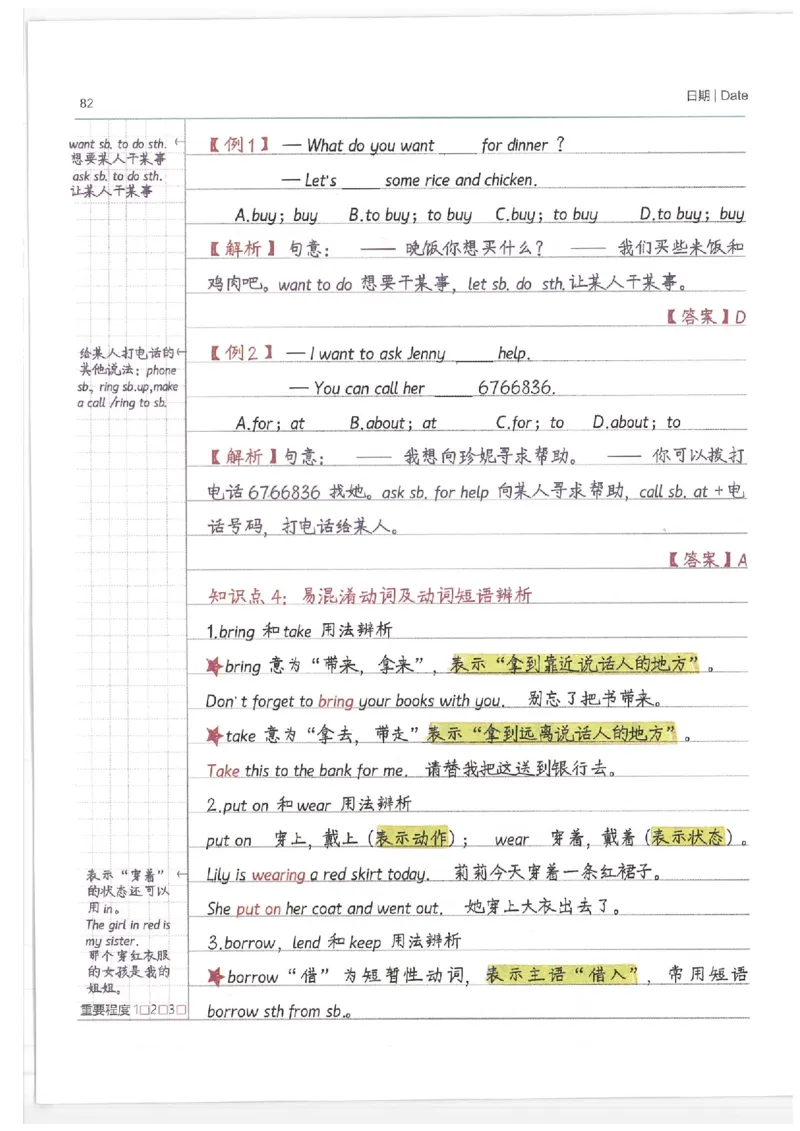 82
日期 | Date
want sb. to do sth. ←
想要某人干某事
ask sb. to do sth.
让某人干某事
【例1】 — What do you want ____ for dinner ?
— Let's ____ some rice and chicken.
A.buy；buy B.to buy；to buy C.buy；to buy D.to buy；buy
【解析】句意： —— 晚饭你想买什么？ —— 我们买些米饭和
鸡肉吧。want to do 想要干某事，let sb. do sth.让某人干某事。
【答案】D
给某人打电话的←
其他说法：phone
sb., ring sb.up,make
a call /ring to sb.
【例2】 — I want to ask Jenny ____ help.
— You can call her ____ 6766836.
A.for；at B.about；at C.for；to D.about；to
【解析】句意： —— 我想向珍妮寻求帮助。 —— 你可以拨打
电话6766836 找她。ask sb. for help 向某人寻求帮助，call sb. at +电
话号码，打电话给某人。
【答案】A
知识点4：易混淆动词及动词短语辨析
1.bring 和take 用法辨析
★bring 意为“带来，拿来”，表示“拿到靠近说话人的地方”。
Don't forget to bring your books with you. 别忘了把书带来。
★take 意为“拿去，带走”表示“拿到远离说话人的地方”。
Take this to the bank for me. 请替我把这送到银行去。
2.put on 和wear 用法辨析
put on 穿上，戴上（表示动作）； wear 穿着，戴着（表示状态）。
表示“穿着”←
的状态还可以
用in。
The girl in red is
my sister.
那个穿红衣服
的女孩是我的
姐姐。
Lily is wearing a red skirt today. 莉莉今天穿着一条红裙子。
She put on her coat and went out. 她穿上大衣出去了。
3.borrow，lend 和keep 用法辨析
★borrow “借” 为短暂性动词，表示主语“借入”，常用短语
borrow sth from sb.。
重要程度 1□2□3□